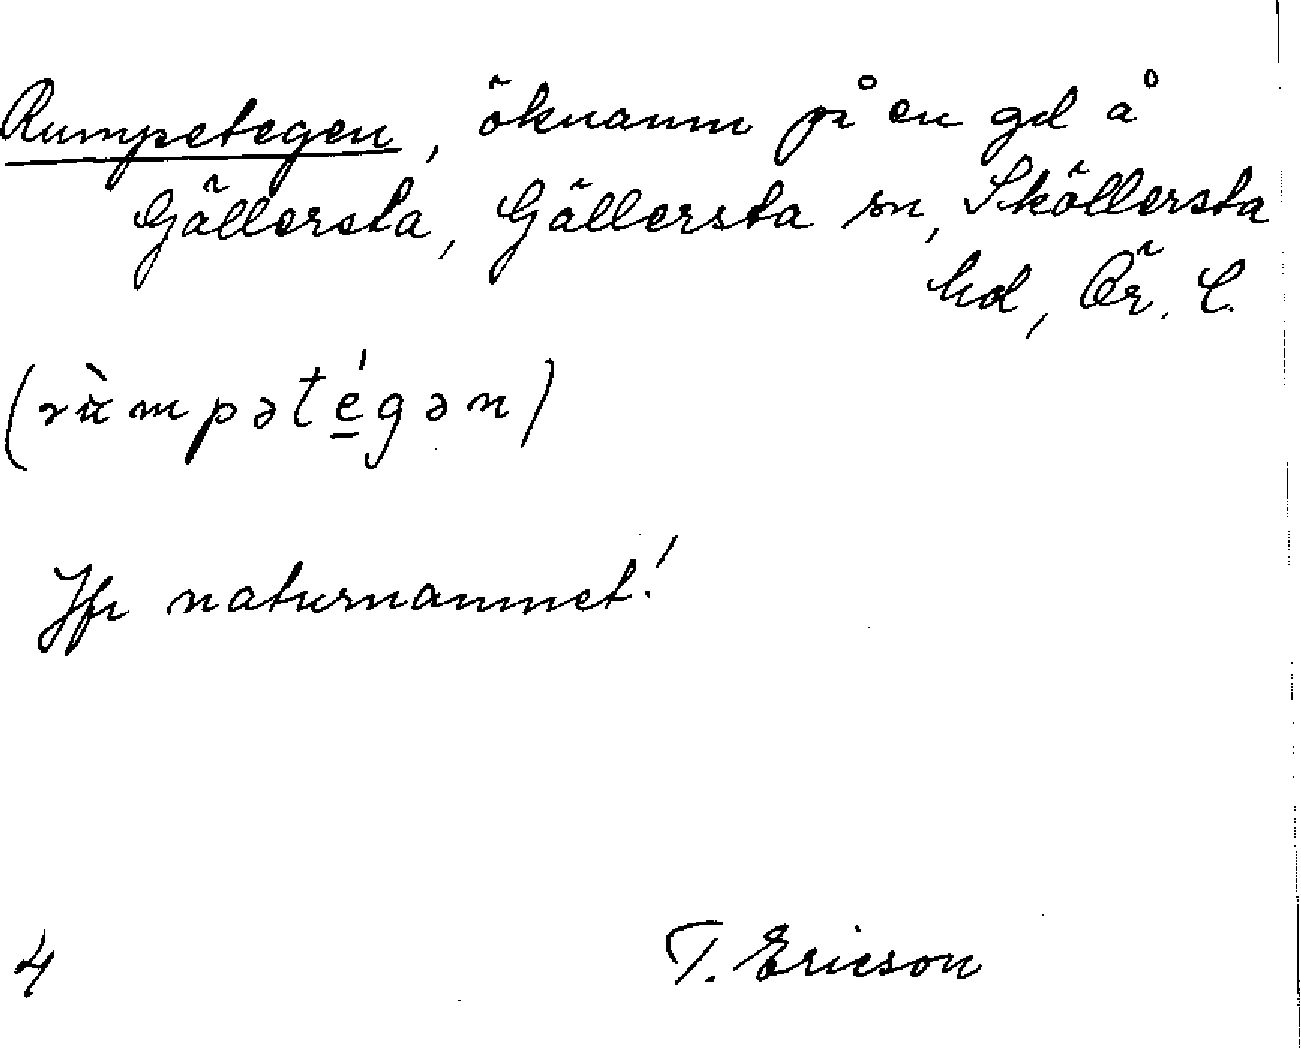 Rumpetegen, öknamn på en gd å
Gällersta, Gällersta sn, Sköllersta
hd, Ör. l.
(rùmpətégən)
Jfr naturnamnet!
4 T. Ericson